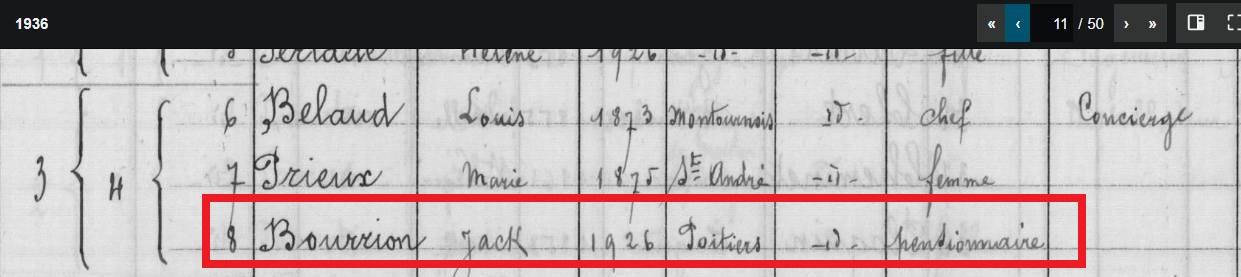 1936
« ‹ 11 / 50 › »
Hélène 1926 -id- -id- fille
3 4 6 Belaud Louis 1873 Montournois id- chef Concierge
7 Prieux Marie 1875 St André -id- femme
8 Bourrion Jack 1926 Poitiers -id- pentionnaire